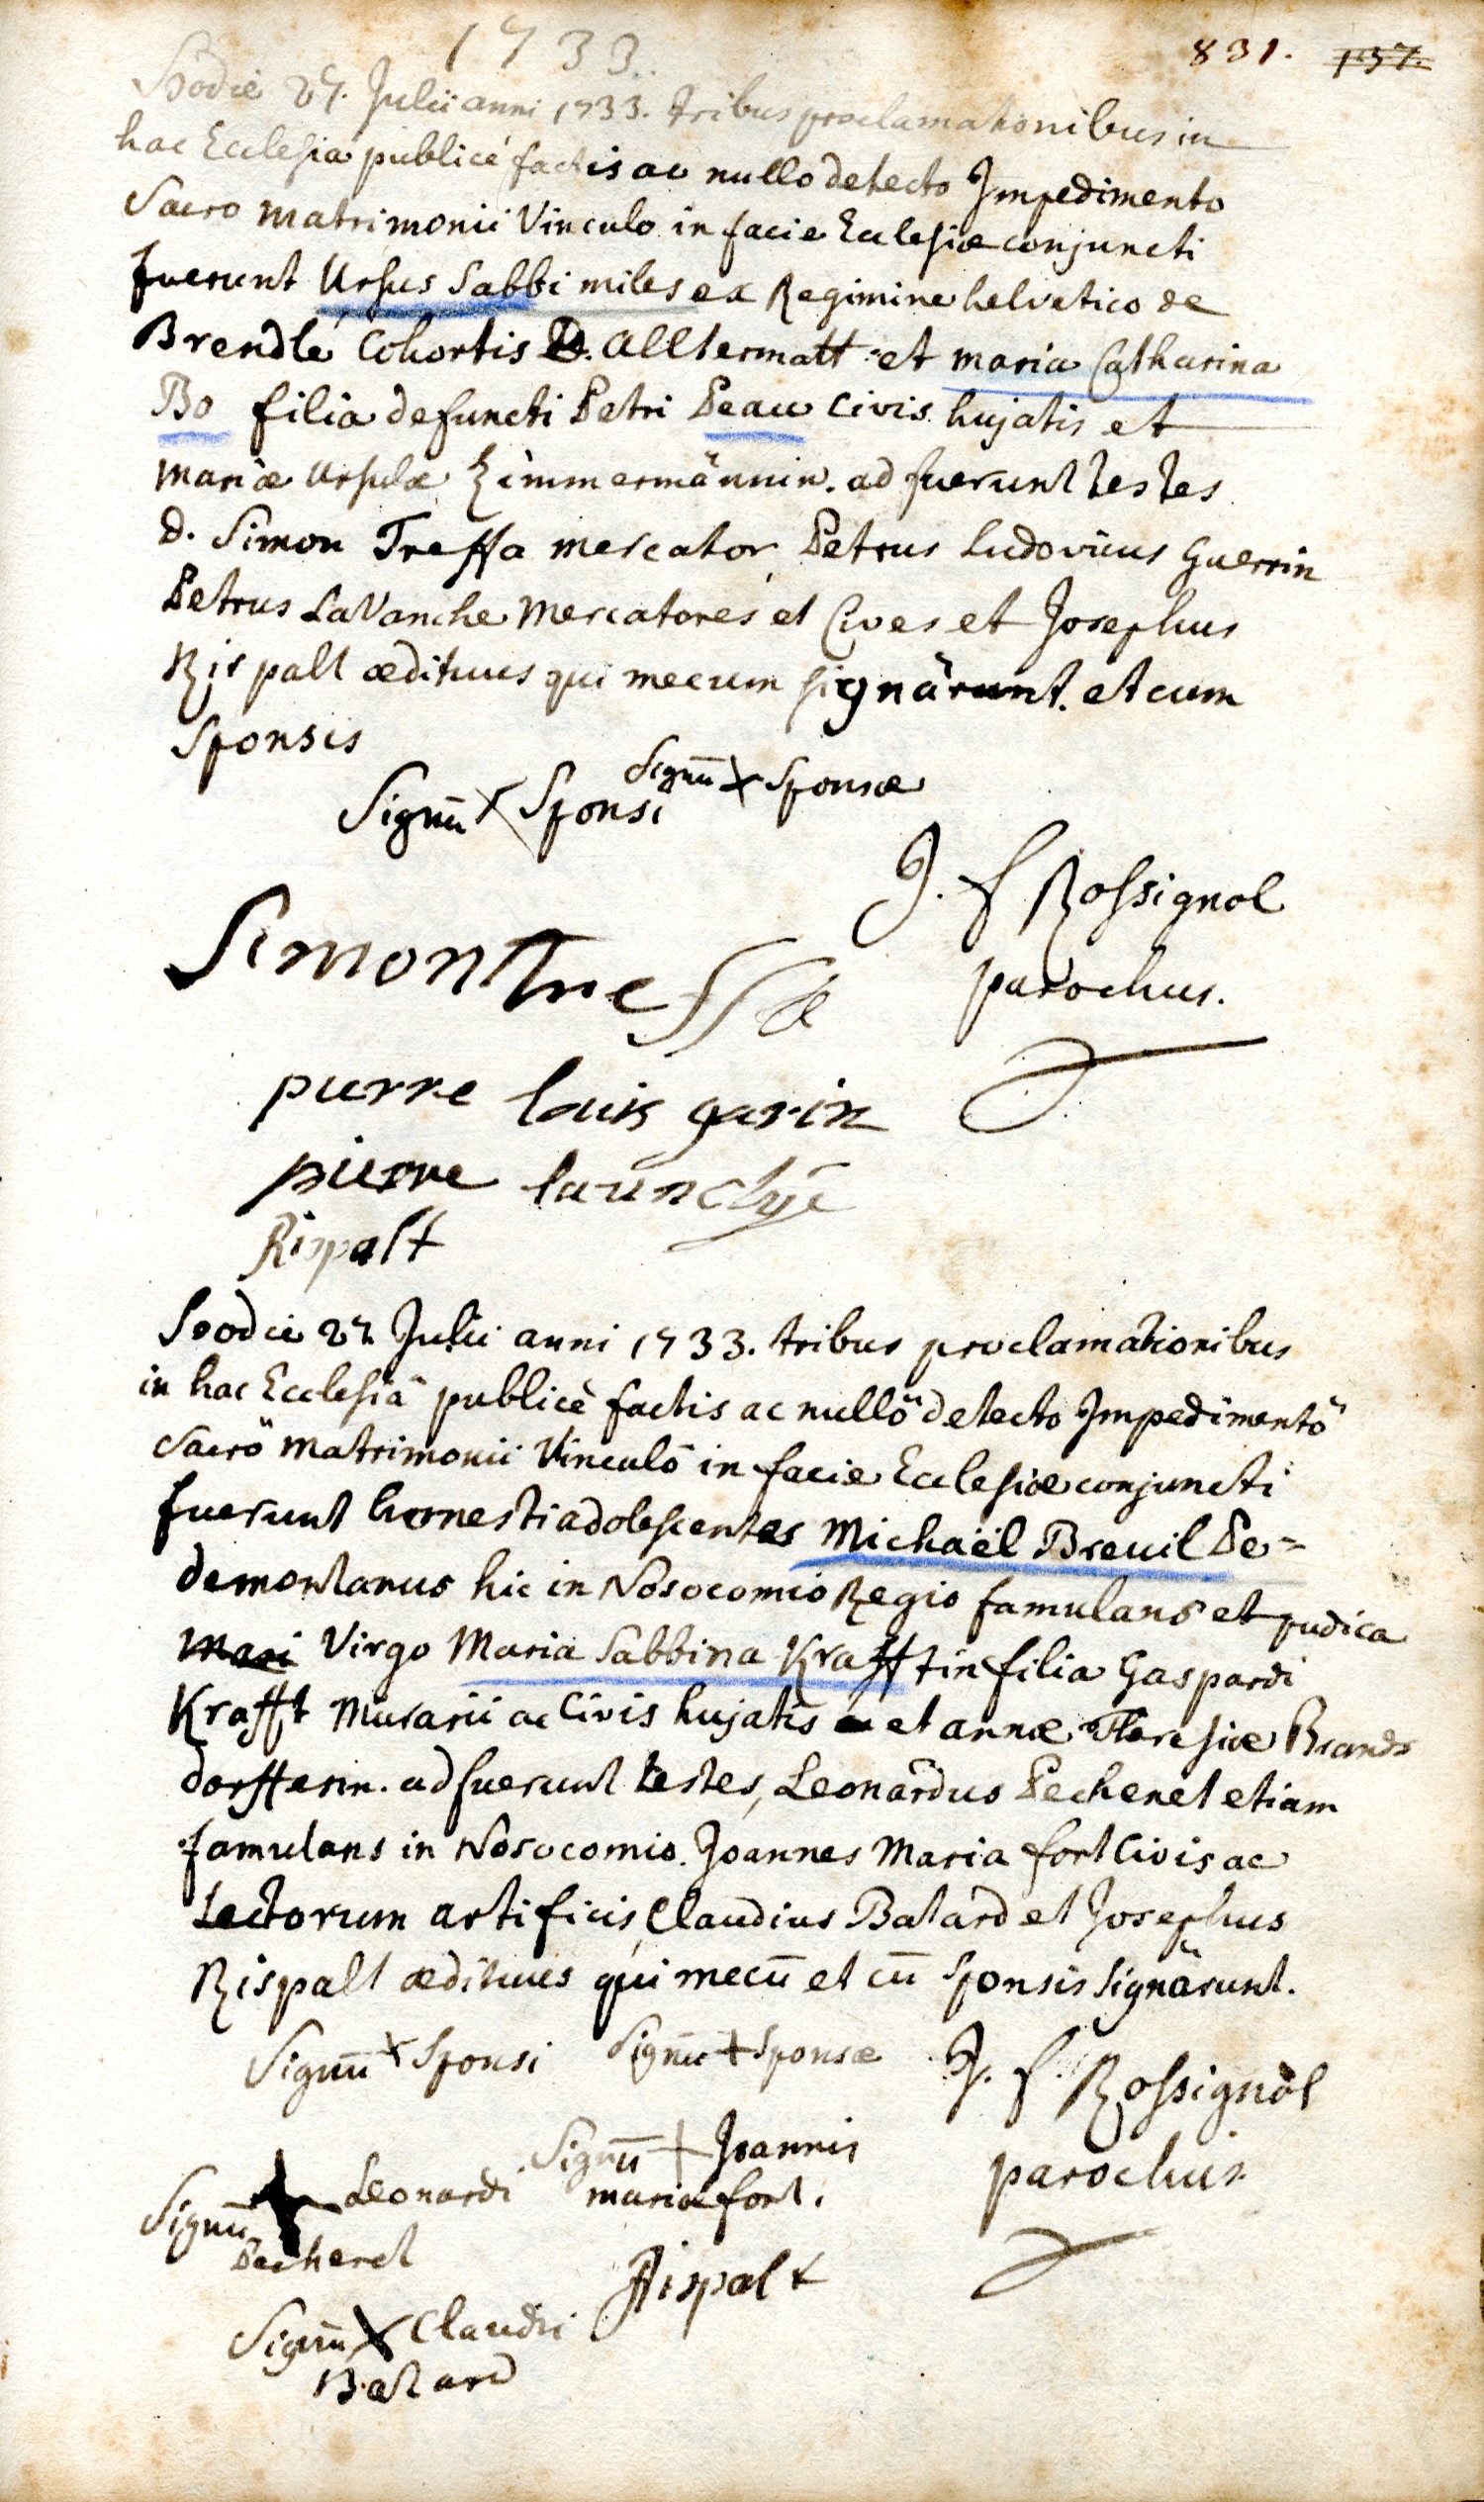 1733.
831. 137.
Hodie 27. Julii anni 1733. tribus proclamationibus in
hac Ecclesia publicè factis ac nullo detecto Impedimento
Sacro matrimonii Vinculo in facie Ecclesiæ conjuncti
fuerunt Ursus Sabbi miles ex Regimine helvetico de
Brendlé Cohortis D. Alltermatt et maria Catharina
Bo filia defuncti Petri Peau Civis hujatis et
mariæ Ursulæ Zimmermännin. ad fuerunt testes
D. Simon Treffa mercator, Petrus Ludovicus Guerrin
Petrus LaVanche Mercatores et Cives et Josephus
Rispalt ædituus qui mecum signârunt. et cum
Sponsis
Signū x Sponsi Signū x Sponsæ
J. f Rossignol
parochus.
Simon Tressa
pierre louis garin
pierre
Rispalt
Hodie 27. Julii anni 1733. tribus proclamationibus
in hac Ecclesiâ publicè factis ac nullô detecto Impedimentô
Sacrô matrimonii Vinculô in facie Ecclesiæ conjuncti
fuerunt honesti adolescentes Michaël Breuil Pe=
demontanus hic in Nosocomio Regio famulans et pudica
Mari Virgo Maria Sabbina Krafftin filia Gaspardi
Krafft Murarii ac Civis hujatis et annæ Theresiæ Brands
dorfferin. ad fuerunt testes, Leonardus Pechenet etiam
famulans in Nosocomio. Joannes Maria fort Civis ac
tectorum artificis, Claudius Batard et Josephus
Rispalt ædituus qui mecū et cū Sponsis signârunt.
Signū x Sponsi Signū + Sponsæ
J. f. Rossignol
parochus
Signū + Joannis
mariæ fort.
Signū + Leonardi
Pechenet
Rispalt
Signū x Claudii
Batard